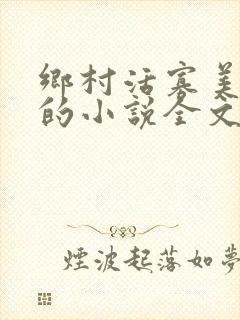 鄉村活寡美
的小說全文
煙波起落如夢